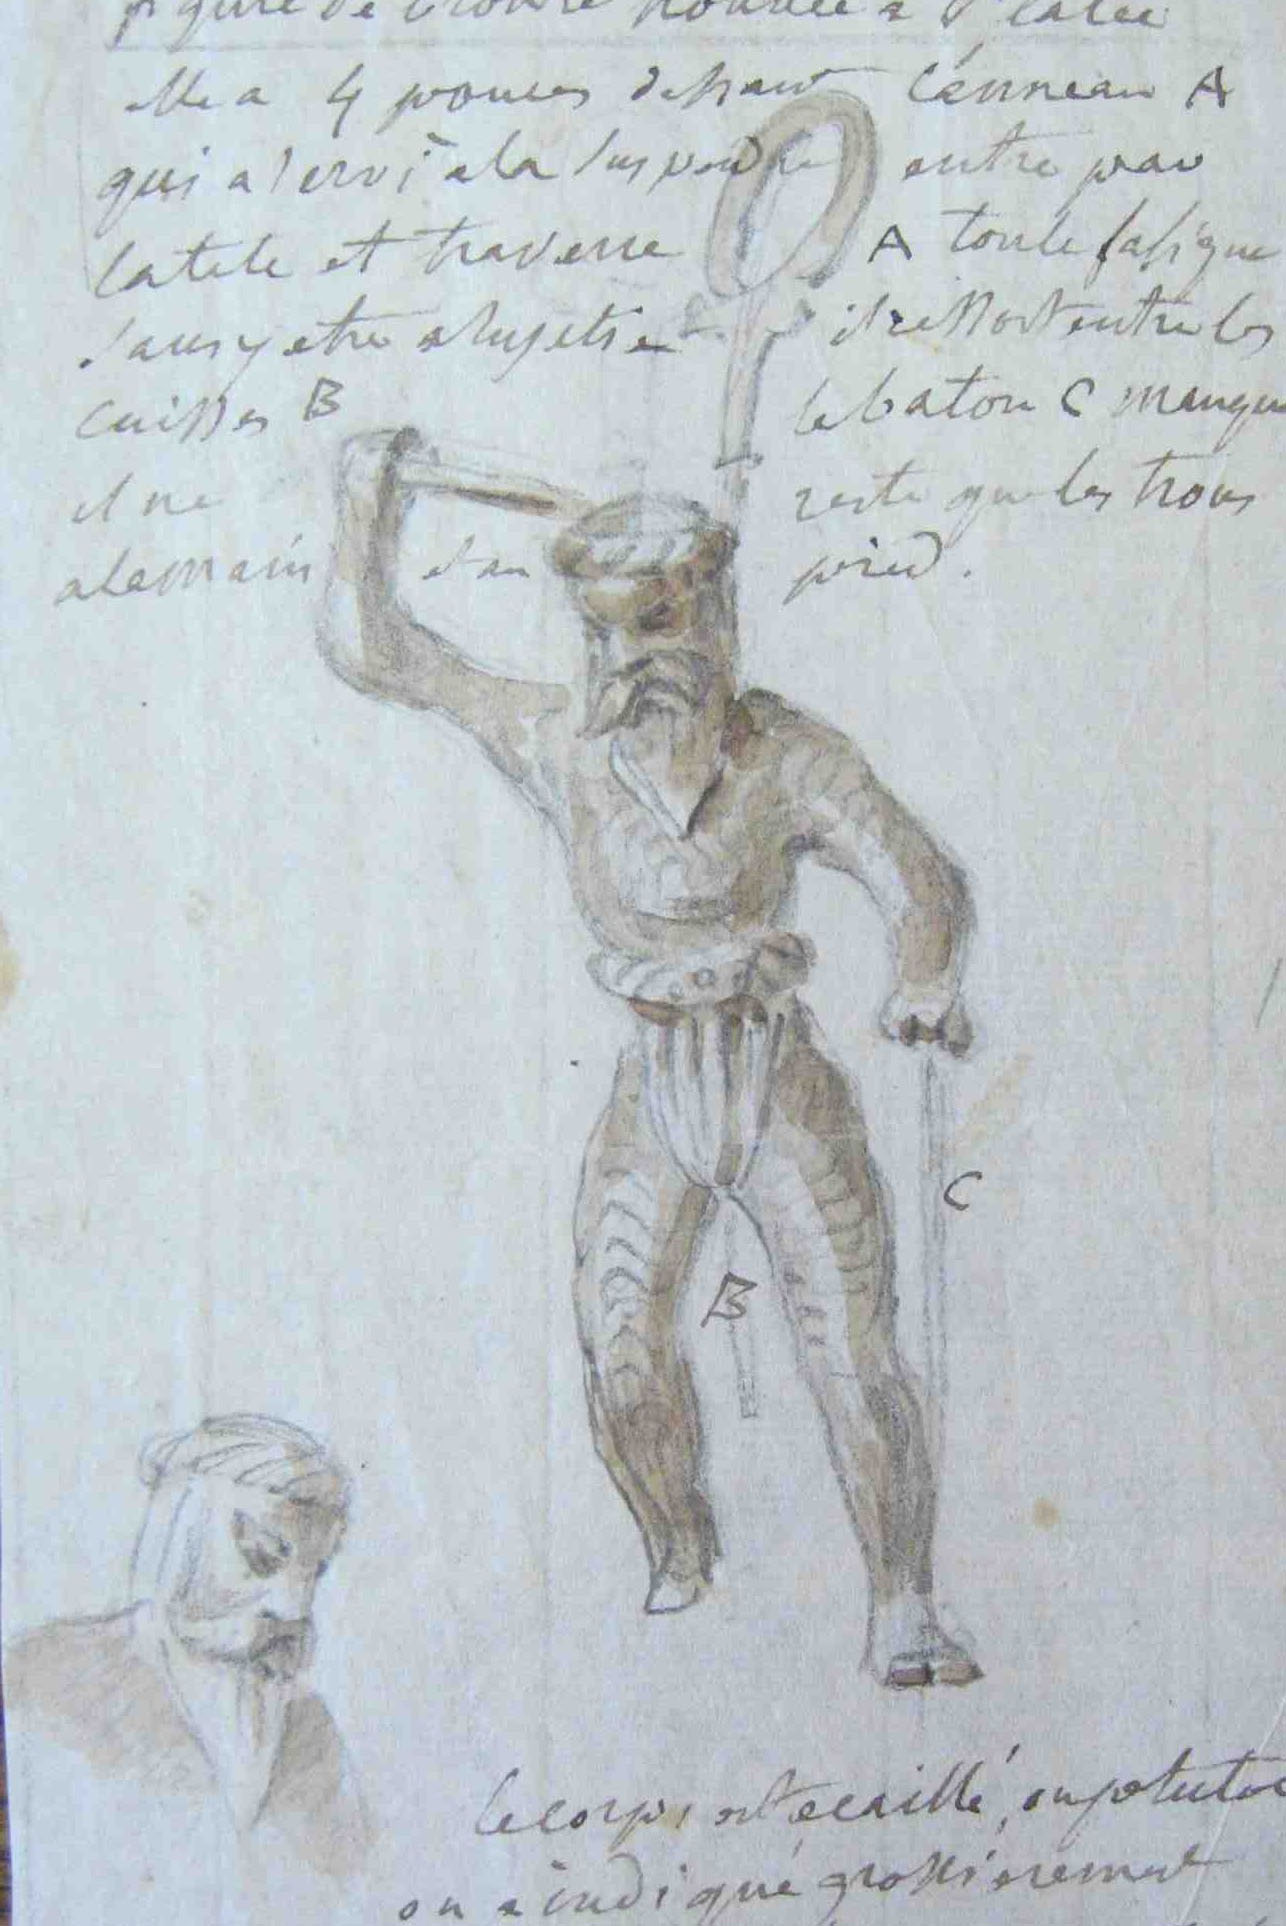 figure de bronze trouvée a Platée
elle a 4 pouces de haut l'anneau A
qui a servi a la suspendre entre par
la tete et traverse A toute la figure
sans y etre assujetie il ressort entre les
cuisses B le baton C manque
il ne reste que les trous
a la main et au pied.
C
B
le corps est ecaillé, ou plutot
on a indiqué grossierement